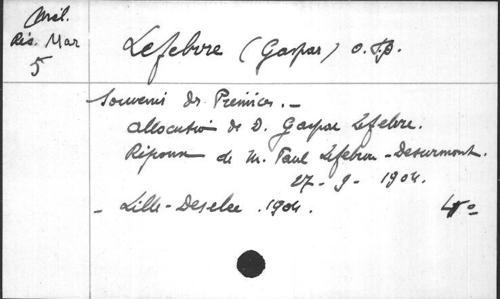 Mél.
Ris. Mar
5
Lefebvre (Gaspar) O.S.B.
Souvenir de Prémices. -
Allocution de D. Gaspar Lefebvre.
Réponse de M. Paul Lefebvre-Desurmont.
27-9-1904.
- Lille-Desclée. 1904. 4°